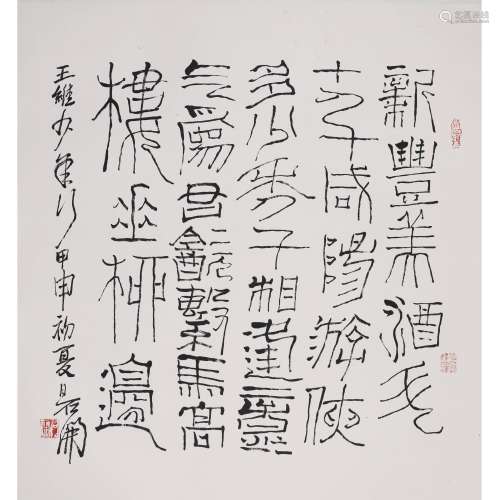 新豐美酒斗
十千咸陽游俠
多少秊相逢意
气爲君飲繫馬高
樓垂柳邊
王維少年行甲申初夏石開